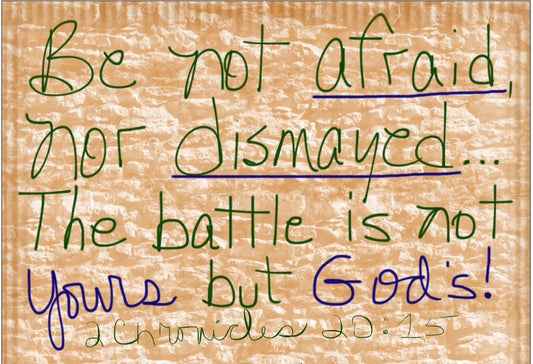 Be not afraid,
nor dismayed...
The battle is not
yours but God's!
2 Chronicles 20:15